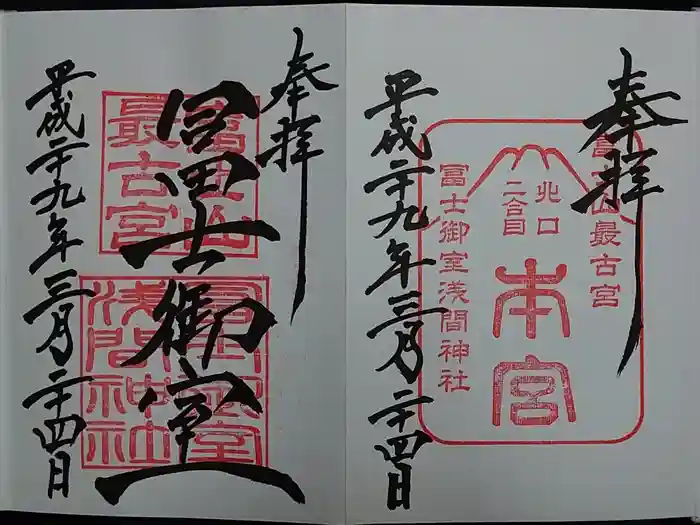 奉拝
富士山
北口
二合目
最古宮
本宮
冨士御室浅間神社
平成二十九年三月二十四日
奉拝
富士山
最古宮
冨士御室
浅間神社
冨士御室
平成二十九年三月二十四日